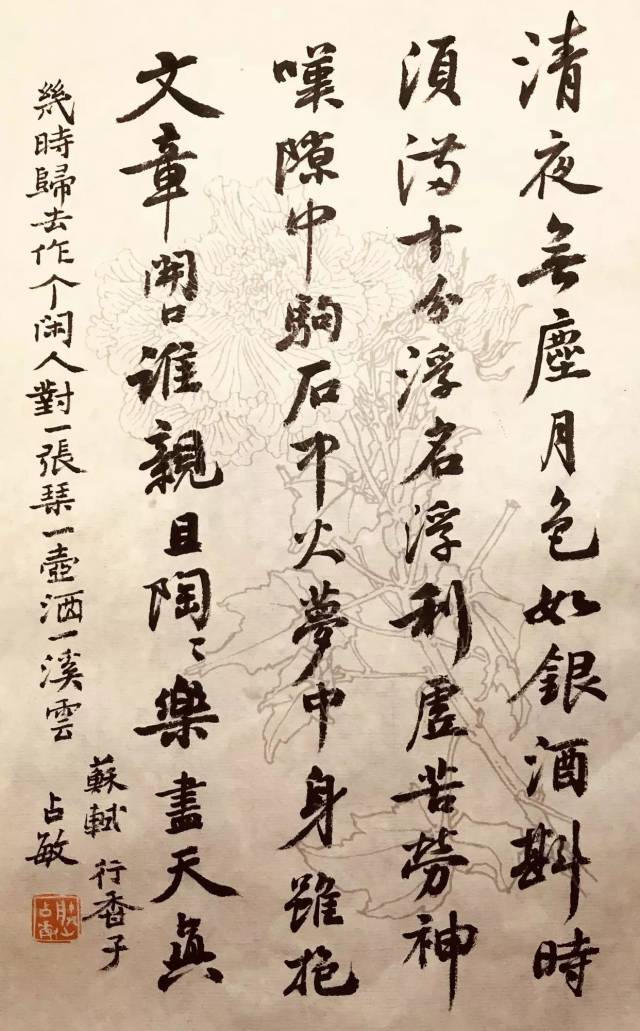 清夜無塵月色如銀酒斟時
須滿十分浮名浮利虛苦勞神
嘆隙中駒石中火夢中身雖抱
文章開口誰親且陶〻樂盡天眞
幾時歸去作个闲人對一張琴一壺酒一溪雲
蘇軾 行香子
占敏